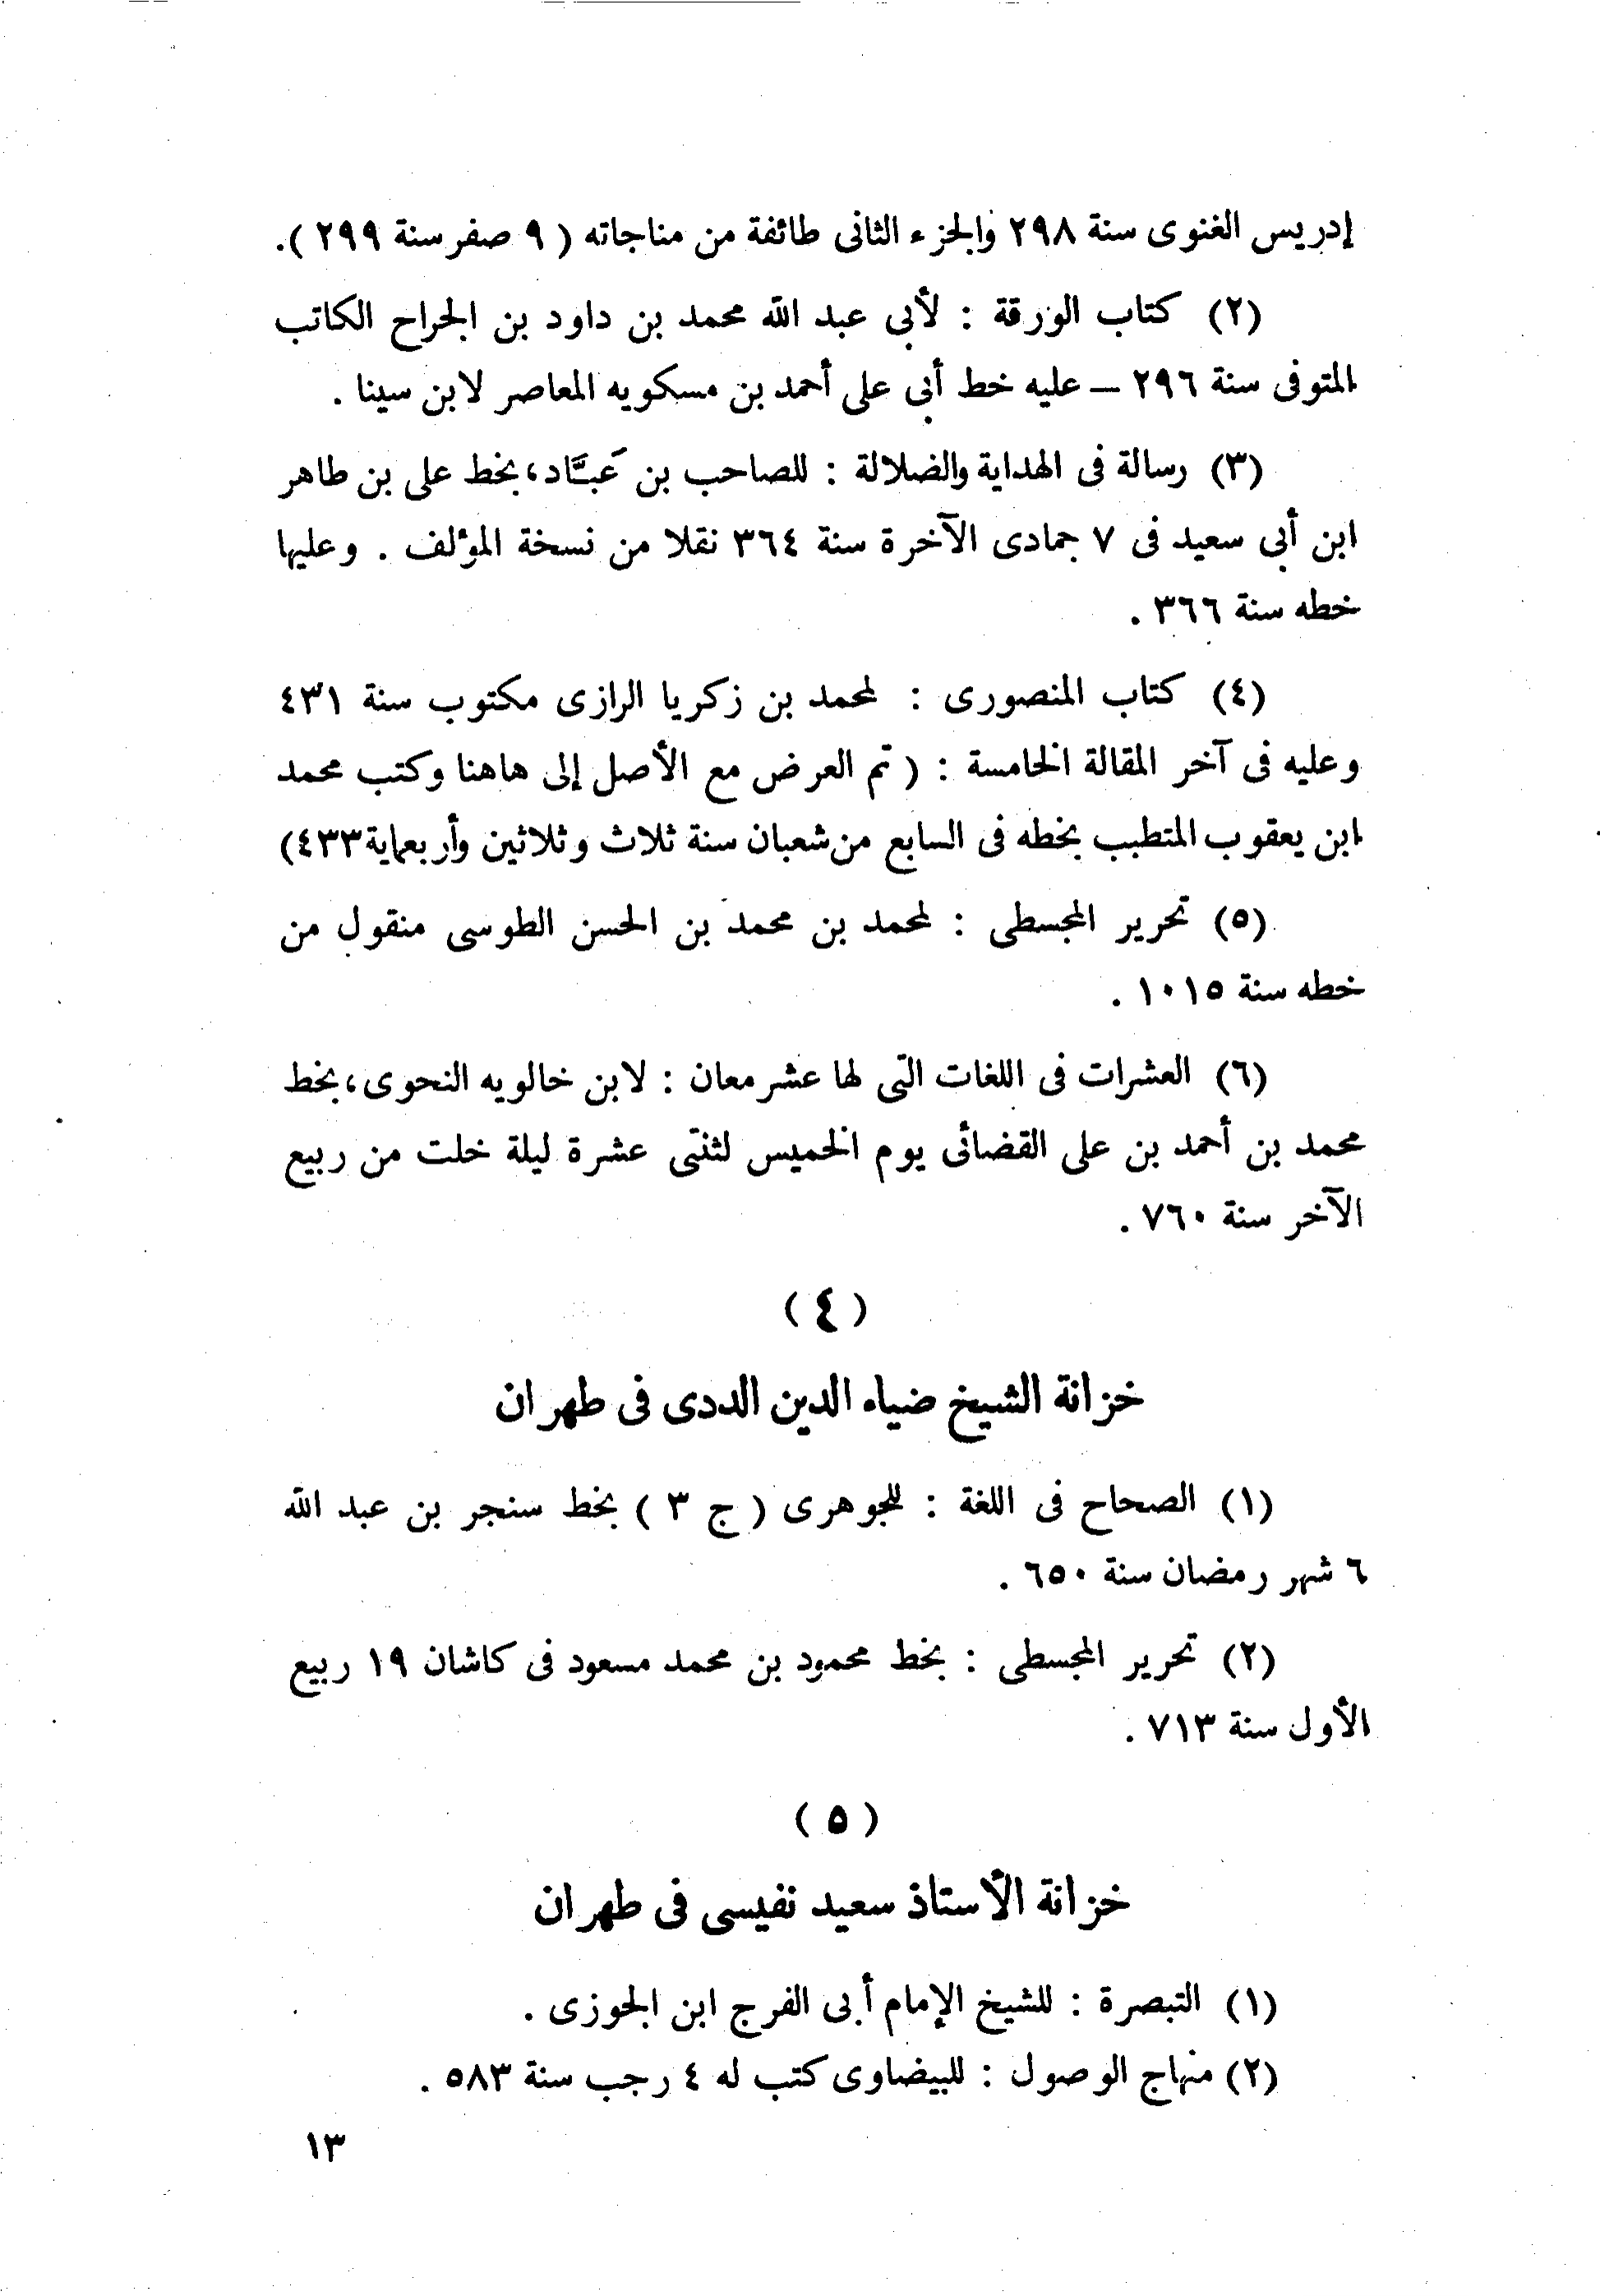 إدريس الغنوى سنة ٢٩٨ والجزء الثانى طائفة من مناجاته ( ٩ صفر سنة ٢٩٩ ).
(٢) كتاب الورقة : لأبي عبد الله محمد بن داود بن الجراح الكاتب
المتوفى سنة ٢٩٦ – عليه خط أبي على أحمد بن مسكويه المعاصر لابن سينا .
(٣) رسالة فى الهداية والضلالة : للصاحب بن عَبَّاد، بخط على بن طاهر
ابن أبي سعيد فى ٧ جمادى الآخرة سنة ٣٦٤ نقلا من نسخة المؤلف . وعليها
خطه سنة ٣٦٦ .
(٤) كتاب المنصورى : لمحمد بن زكريا الرازى مكتوب سنة ٤٣١
وعليه فى آخر المقالة الخامسة : ( تم العرض مع الأصل إلى هاهنا وكتب محمد
ابن يعقوب المتطبب بخطه فى السابع من شعبان سنة ثلاث وثلاثين وأربعماية ٤٣٣)
(٥) تحرير المجسطى : لمحمد بن محمد بن الحسن الطوسى منقول من
خطه سنة ١٠١٥ .
(٦) العشرات فى اللغات التى لها عشر معان : لابن خالويه النحوى، بخط
محمد بن أحمد بن على القضائى يوم الخميس لثنتى عشرة ليلة خلت من ربيع
الآخر سنة ٧٦٠ .
( ٤ )
خزانة الشيخ ضياء الدين الددى فى طهران
(١) الصحاح فى اللغة : للجوهرى ( ج ٣ ) بخط سنجر بن عبد الله
٦ شهر رمضان سنة ٦٥٠ .
(٢) تحرير المجسطى : بخط محمود بن محمد مسعود فى كاشان ١٩ ربيع
الأول سنة ٧١٣ .
( ٥ )
خزانة الأستاذ سعيد نفيسى فى طهران
(١) التبصرة : للشيخ الإمام أبى الفرج ابن الجوزى .
(٢) منهاج الوصول : للبيضاوى كتب له ٤ رجب سنة ٥٨٣ .
١٣